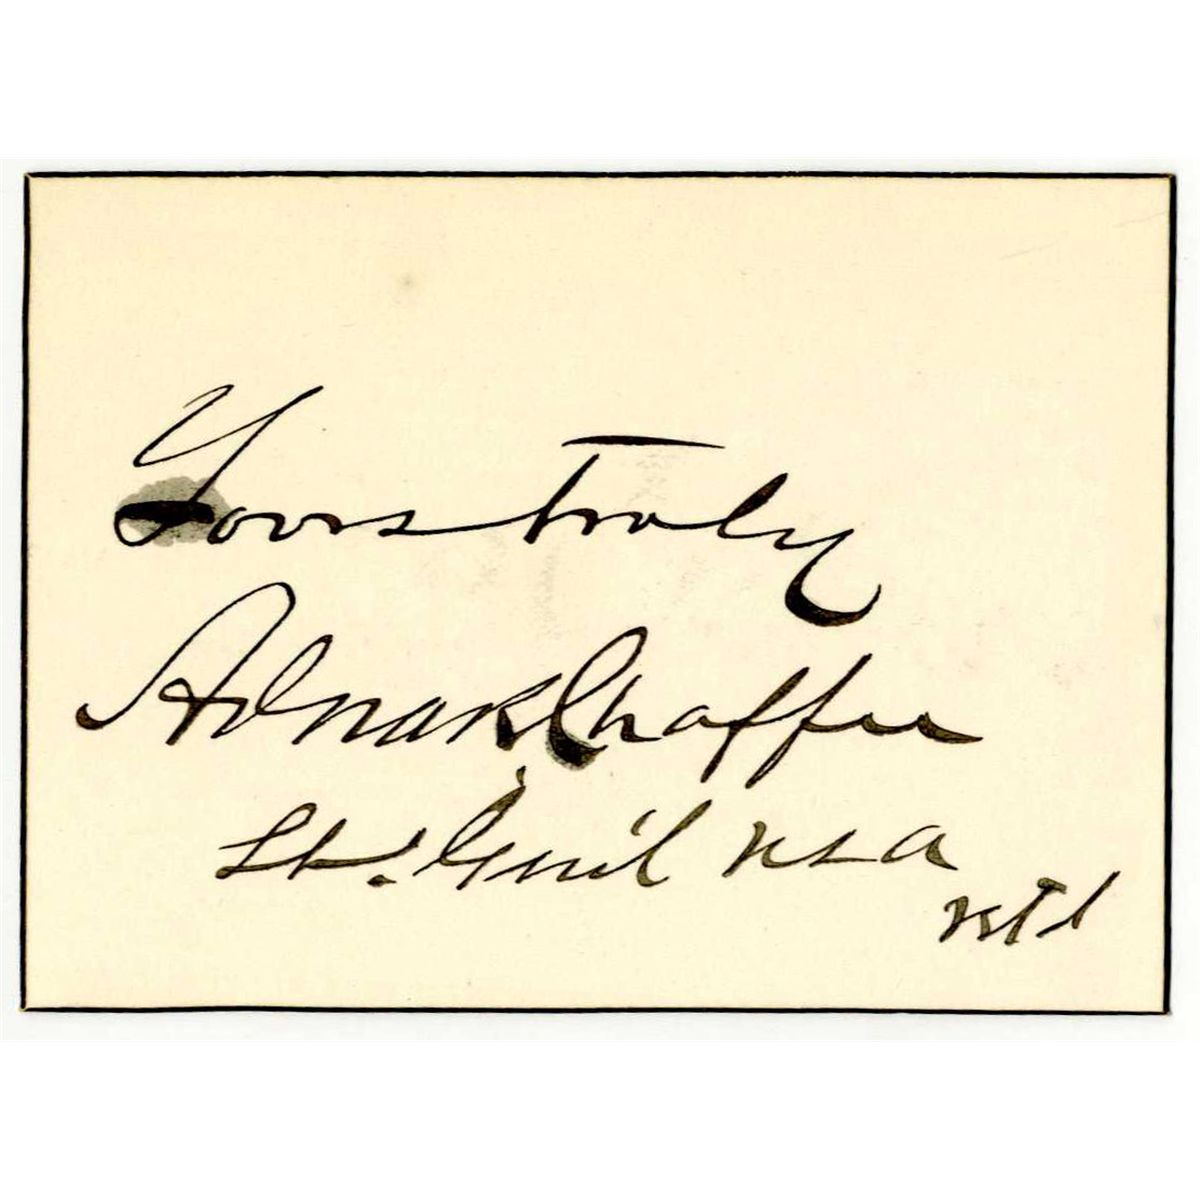 Yours truly
Adna R Chaffee
Lt. Gen'l USA
Rtd